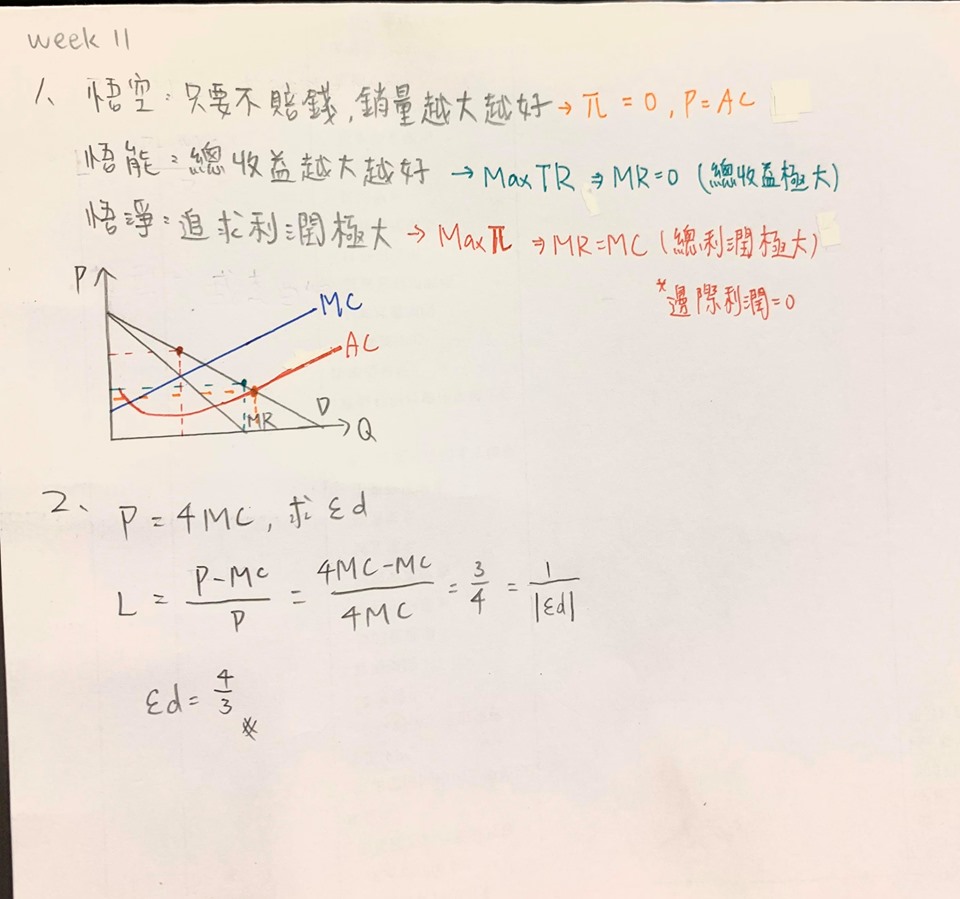 week 11
1、悟空:只要不賠錢,銷量越大越好→π=0,P=AC
悟能:總收益越大越好 →MaxTR ⇒MR=0(總收益極大)
悟淨:追求利潤極大 →Maxπ ⇒MR=MC(總利潤極大)
*邊際利潤=0
P
MC
AC
MR
D
Q
2、P=4MC,求εd
L = (P-MC)/P = (4MC-MC)/4MC = 3/4 = 1/|εd|
εd=4/3 ※